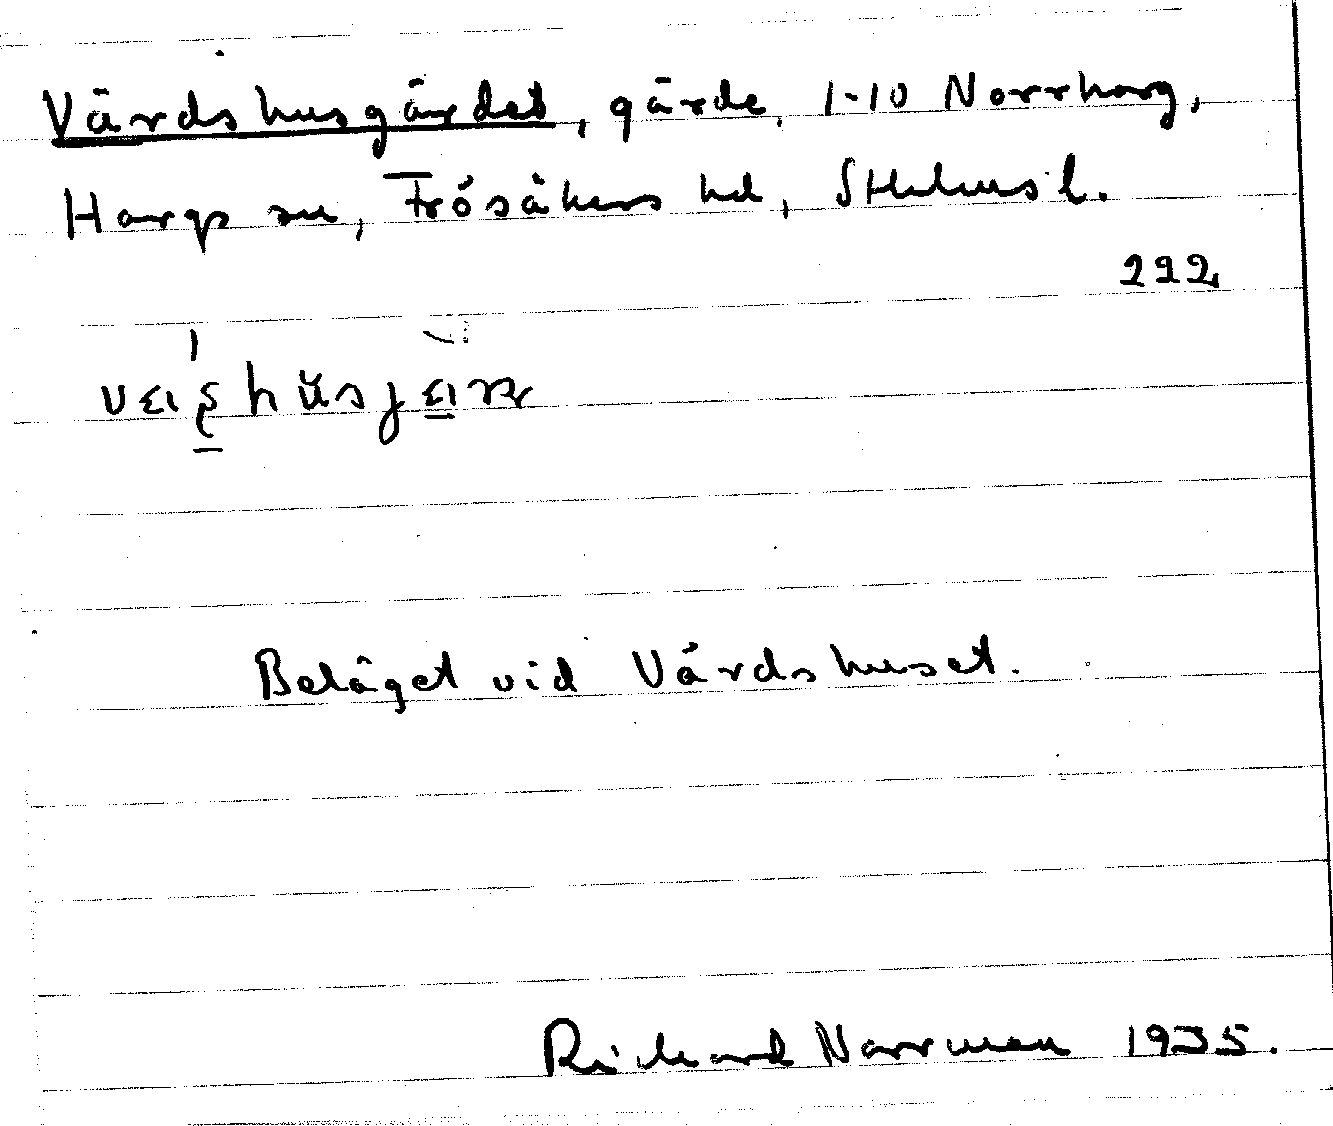 Värdshusgärdet, gärde, 1-10 Norrharg,
Hargs sn, Frösåkers hd, Sthlms l.
222
Beläget vid Värdshuset.
Richard Norrman 1935.